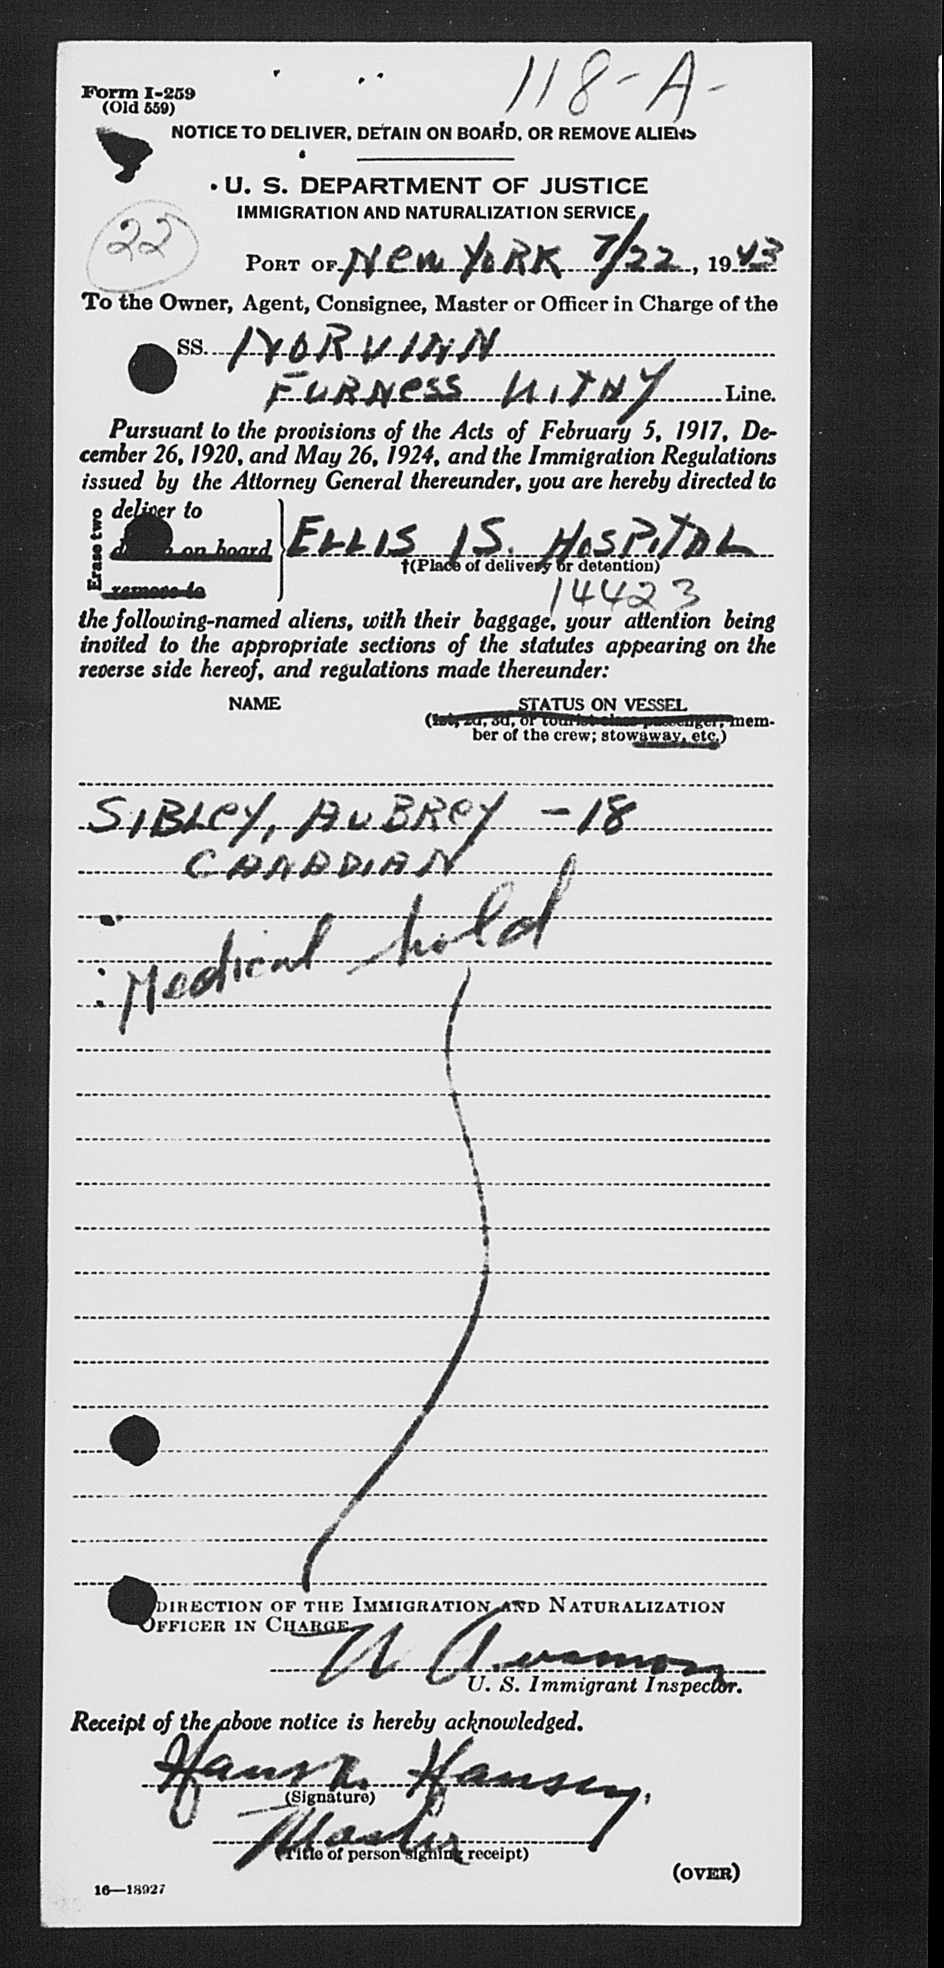 118-A-
Form I-259
(Old 559)
NOTICE TO DELIVER, DETAIN ON BOARD, OR REMOVE ALIENS
U. S. DEPARTMENT OF JUSTICE
IMMIGRATION AND NATURALIZATION SERVICE
22
PORT OF NEW YORK 7/22, 1943
To the Owner, Agent, Consignee, Master or Officer in Charge of the
SS. NORVINN
FURNESS WITHY Line.
Pursuant to the provisions of the Acts of February 5, 1917, De-
cember 26, 1920, and May 26, 1924, and the Immigration Regulations
issued by the Attorney General thereunder, you are hereby directed to
Erase two
deliver to
on board
remove to
ELLIS IS. HOSPITAL
†(Place of delivery or detention)
14423
the following-named aliens, with their baggage, your attention being
invited to the appropriate sections of the statutes appearing on the
reverse side hereof, and regulations made thereunder:
NAME STATUS ON VESSEL
(1st, 2d, 3d, or tourist-class passenger; mem-
ber of the crew; stowaway, etc.)
SIBLEY, AUBREY - 18
CANADIAN
Medical hold
DIRECTION OF THE IMMIGRATION AND NATURALIZATION
OFFICER IN CHARGE
U. S. Immigrant Inspector.
Receipt of the above notice is hereby acknowledged.
Hansen
(Signature)
Master
(Title of person signing receipt)
(OVER)
16—18927